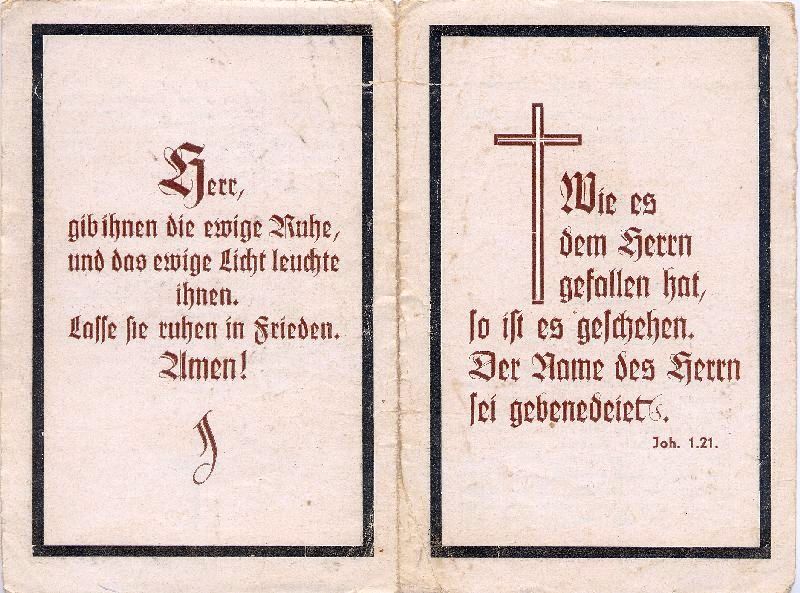 Herr,
gib ihnen die ewige Ruhe,
und das ewige Licht leuchte
ihnen.
Lasse sie ruhen in Frieden.
Amen!
Wie es
dem Herrn
gefallen hat,
so ist es geschehen.
Der Name des Herrn
sei gebenedeiet.
Joh. 1.21.